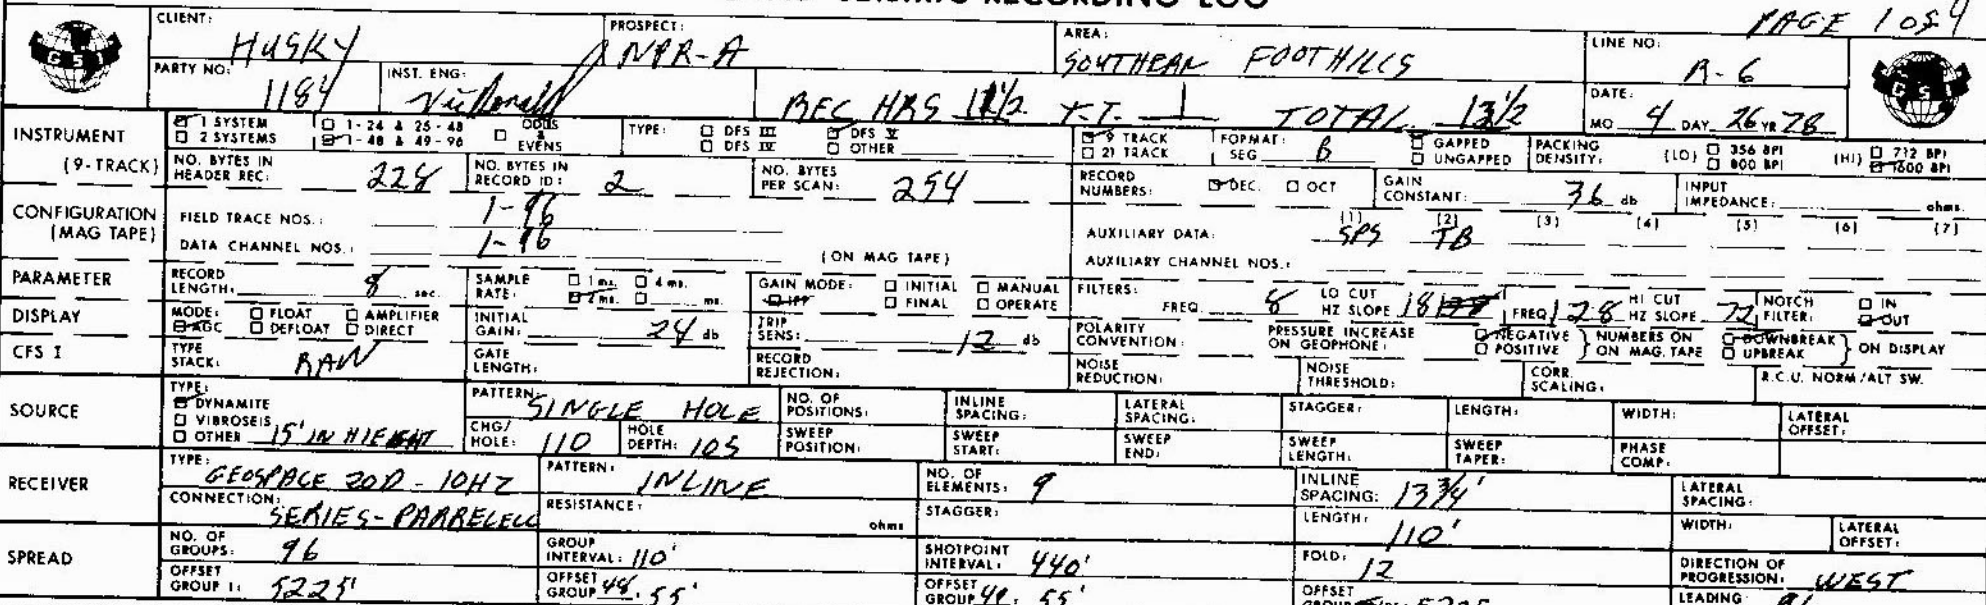 SEISMIC RECORDING LOG
PAGE 1 OF 4
GSI
CLIENT: HUSKY
PROSPECT: NPR-A
AREA: SOUTHERN FOOTHILLS
LINE NO: R-6
GSI
PARTY NO: 1184
INST. ENG:
REC HRS 11 1/2 T.T. 1 TOTAL 13 1/2
DATE: MO 4 DAY 26 YR 78
INSTRUMENT (9-TRACK)
1 SYSTEM 2 SYSTEMS
1-24 & 25-48 1-48 & 49-96
ODDS & EVENS
TYPE: DFS III DFS IV DFS V OTHER
9 TRACK 21 TRACK
FORMAT: SEG B
GAPPED UNGAPPED
PACKING DENSITY: (LO) 356 BPI 800 BPI (HI) 712 BPI 1600 BPI
NO. BYTES IN HEADER REC: 228
NO. BYTES IN RECORD ID: 2
NO. BYTES PER SCAN: 254
RECORD NUMBERS: DEC. OCT
GAIN CONSTANT: 36 db
INPUT IMPEDANCE: ohms.
CONFIGURATION (MAG TAPE)
FIELD TRACE NOS.: 1-96
DATA CHANNEL NOS.: 1-96 (ON MAG TAPE)
AUXILIARY DATA: (1) SPS (2) TB (3) (4) (5) (6) (7)
AUXILIARY CHANNEL NOS.:
PARAMETER
RECORD LENGTH: 8 sec.
SAMPLE RATE: 1 ms. 4 ms. 2 ms. ms.
GAIN MODE: INITIAL MANUAL IFP FINAL OPERATE
FILTERS: FREQ 8 LO CUT HZ SLOPE 18 FREQ 128 HI CUT HZ SLOPE 72
NOTCH FILTER: IN OUT
DISPLAY
MODE: FLOAT AMPLIFIER AGC DEFLOAT DIRECT
INITIAL GAIN: 24 db
TRIP SENS: 12 db
POLARITY CONVENTION: PRESSURE INCREASE ON GEOPHONE: NEGATIVE POSITIVE } NUMBERS ON ON MAG. TAPE DOWNBREAK UPBREAK } ON DISPLAY
CFS I
TYPE STACK: RAW
GATE LENGTH:
RECORD REJECTION:
NOISE REDUCTION:
NOISE THRESHOLD:
CORR. SCALING:
R.C.U. NORM/ALT SW.
SOURCE
TYPE: DYNAMITE VIBROSEIS OTHER 15' IN HIEGHT
PATTERN: SINGLE HOLE
NO. OF POSITIONS:
INLINE SPACING:
LATERAL SPACING:
STAGGER:
LENGTH:
WIDTH:
LATERAL OFFSET:
CHG/HOLE: 110
HOLE DEPTH: 105
SWEEP POSITION:
SWEEP START:
SWEEP END:
SWEEP LENGTH:
SWEEP TAPER:
PHASE COMP:
RECEIVER
TYPE: GEOSPACE 20D - 10HZ
PATTERN: INLINE
NO. OF ELEMENTS: 9
INLINE SPACING: 13 3/4'
LATERAL SPACING:
CONNECTION: SERIES-PARRELELL
RESISTANCE: ohms
STAGGER:
LENGTH: 110'
WIDTH:
LATERAL OFFSET:
SPREAD
NO. OF GROUPS: 96
GROUP INTERVAL: 110'
SHOTPOINT INTERVAL: 440'
FOLD: 12
DIRECTION OF PROGRESSION: WEST
OFFSET GROUP 1: 5225'
OFFSET GROUP 48: 55'
OFFSET GROUP 49: 55'
OFFSET
LEADING